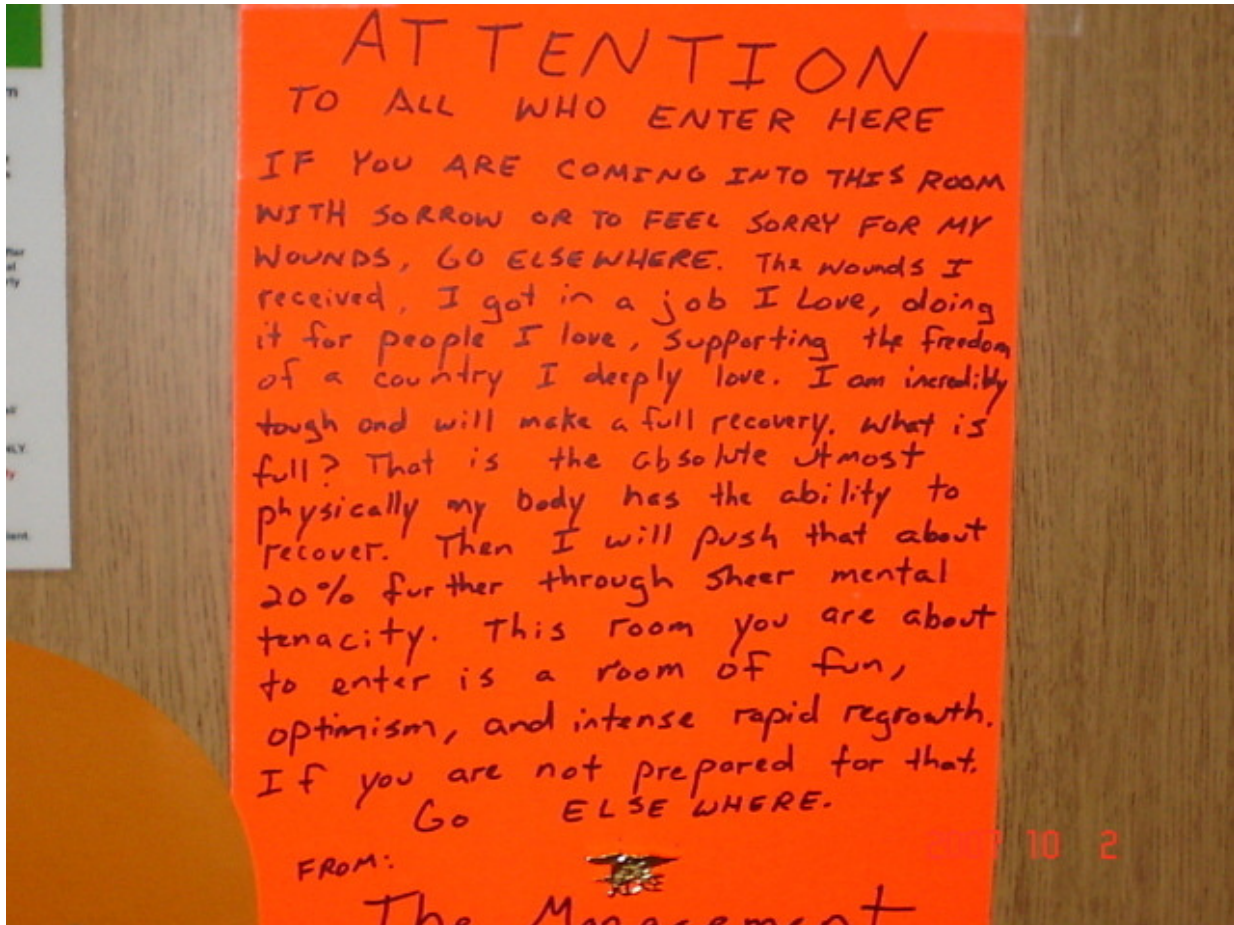 ATTENTION
TO ALL WHO ENTER HERE
IF YOU ARE COMING INTO THIS ROOM
WITH SORROW OR TO FEEL SORRY FOR MY
WOUNDS, GO ELSEWHERE. The wounds I
received, I got in a job I Love, doing
it for people I love, supporting the freedom
of a country I deeply love. I am incredibly
tough and will make a full recovery. What is
full? That is the absolute utmost
physically my body has the ability to
recover. Then I will push that about
20% further through sheer mental
tenacity. This room you are about
to enter is a room of fun,
optimism, and intense rapid regrowth.
If you are not prepared for that.
Go ELSEWHERE.
FROM:
The Management
2007 10 2